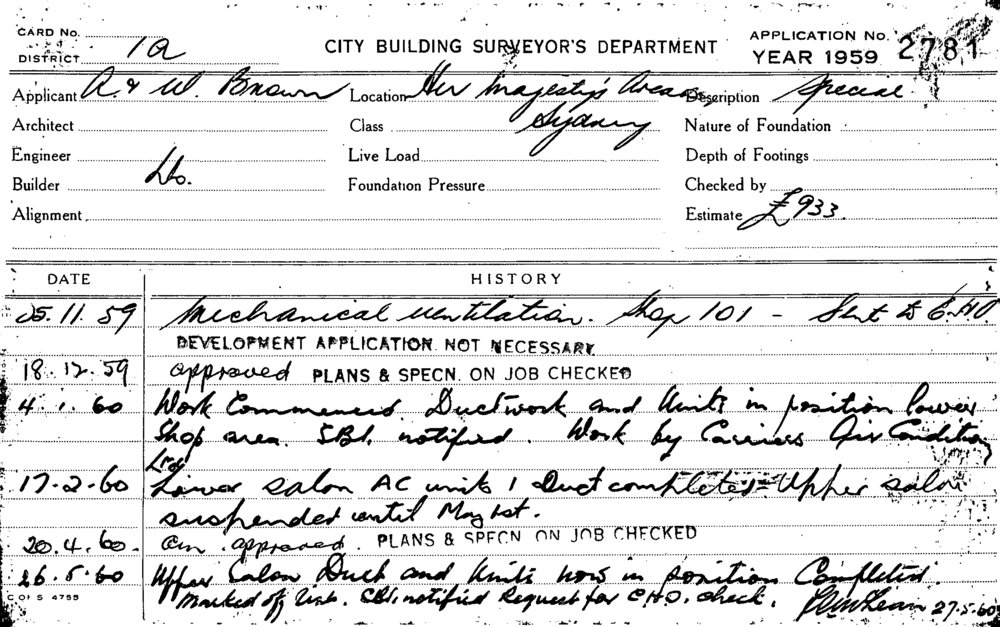 CARD No.
DISTRICT 1a
CITY BUILDING SURVEYOR'S DEPARTMENT
APPLICATION No. 2781
YEAR 1959
Applicant A. & W. Brown Location Her Majesty's Arcade, Description Special
Sydney
Architect Class Nature of Foundation
Engineer Live Load Depth of Footings
Builder Do. Foundation Pressure Checked by
Alignment Estimate £933.
DATE HISTORY
25.11.59 Mechanical ventilation. Shop 101 - Sent to C.H.O
DEVELOPMENT APPLICATION NOT NECESSARY
18.12.59 approved PLANS & SPECN. ON JOB CHECKED
4.1.60 Work Commenced. Ductwork and Units in position lower
Shop area. SBI. notified. Work by Carriers Air Condition
Ltd
17.2.60 Lower salon AC units & Duct completed Upper salon
suspended until May 1st.
20.4.60. am. approved. PLANS & SPECN ON JOB CHECKED
26.5.60 Upper Salon Duct and Units now in position Completed.
Marked off. notified Request for C.H.O. check. 27.5.60
C OF S 4755